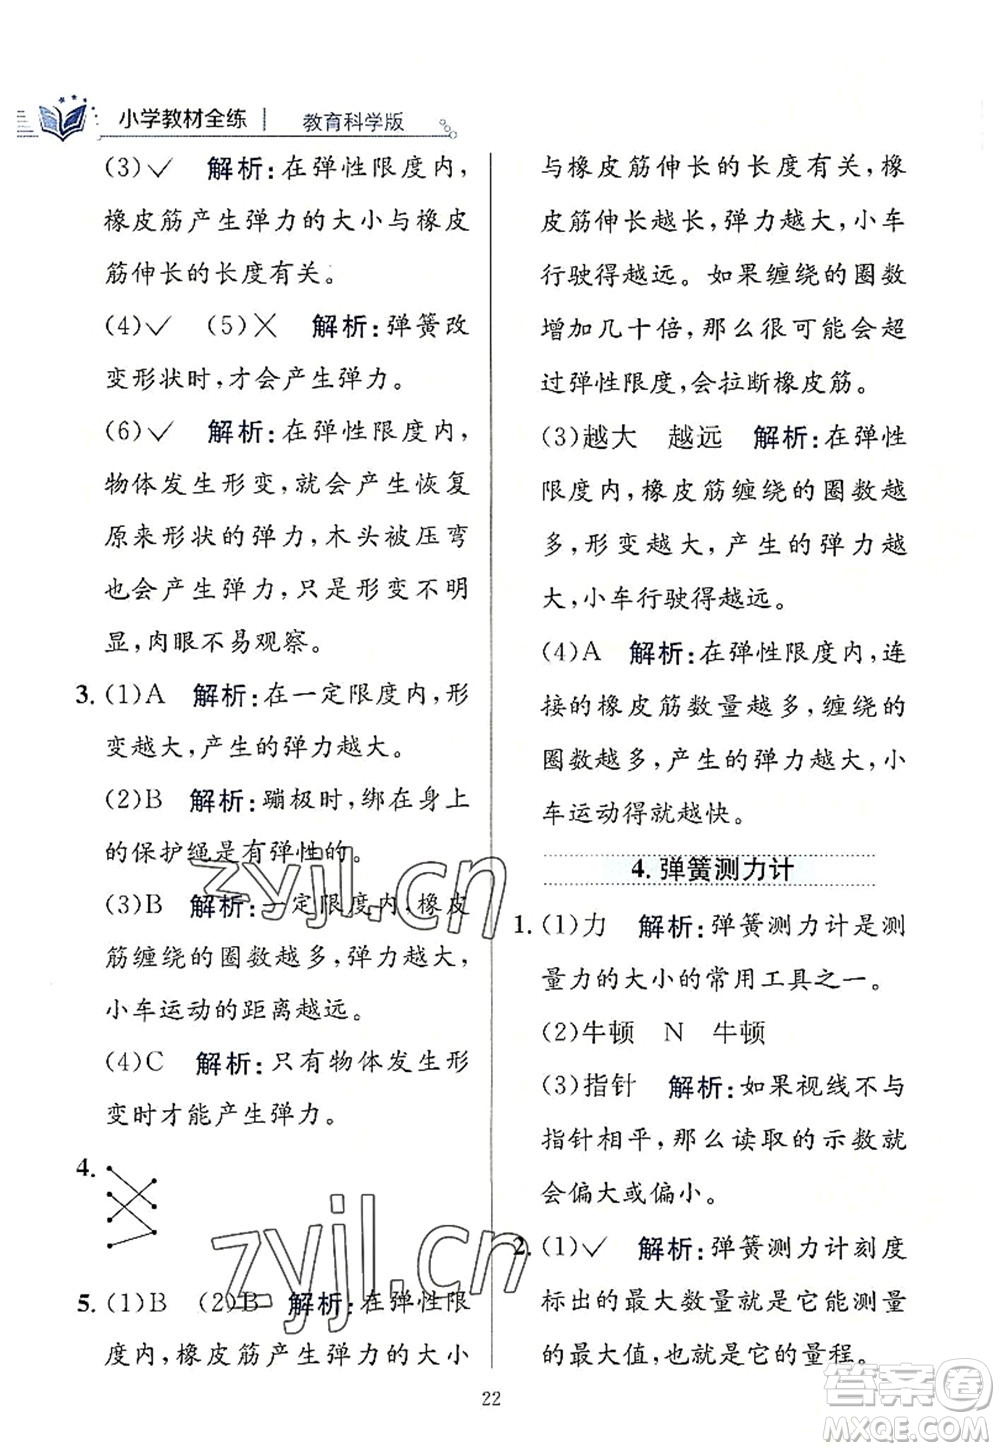 小学教材全练 教育科学版
(3)✓ 解析:在弹性限度内,
橡皮筋产生弹力的大小与橡皮
筋伸长的长度有关。
(4)✓ (5)✕ 解析:弹簧改
变形状时,才会产生弹力。
(6)✓ 解析:在弹性限度内,
物体发生形变,就会产生恢复
原来形状的弹力,木头被压弯
也会产生弹力,只是形变不明
显,肉眼不易观察。
3. (1)A 解析:在一定限度内,形
变越大,产生的弹力越大。
(2)B 解析:蹦极时,绑在身上
的保护绳是有弹性的。
(3)B 解析:一定限度内,橡皮
筋缠绕的圈数越多,弹力越大,
小车运动的距离越远。
(4)C 解析:只有物体发生形
变时才能产生弹力。
4.
5. (1)B (2)B 解析:在弹性限
度内,橡皮筋产生弹力的大小
与橡皮筋伸长的长度有关,橡
皮筋伸长越长,弹力越大,小车
行驶得越远。如果缠绕的圈数
增加几十倍,那么很可能会超
过弹性限度,会拉断橡皮筋。
(3)越大 越远 解析:在弹性
限度内,橡皮筋缠绕的圈数越
多,形变越大,产生的弹力越
大,小车行驶得越远。
(4)A 解析:在弹性限度内,连
接的橡皮筋数量越多,缠绕的
圈数越多,产生的弹力越大,小
车运动得就越快。
4. 弹簧测力计
1. (1)力 解析:弹簧测力计是测
量力的大小的常用工具之一。
(2)牛顿 N 牛顿
(3)指针 解析:如果视线不与
指针相平,那么读取的示数就
会偏大或偏小。
2. (1)✓ 解析:弹簧测力计刻度
标出的最大数量就是它能测量
的最大值,也就是它的量程。
22
zyjl.cn
zyjl.cn
答案圈
MXQE.COM